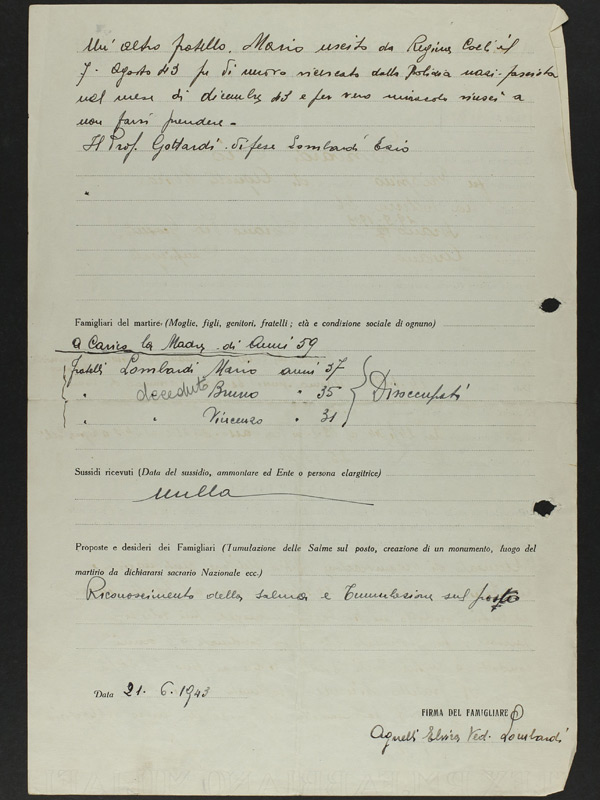 Un' altro fratello. Mario uscito da Regina Coeli il
7. Agosto 43 fu di nuovo ricercato dalla Polizia nazi-fascista
nel mese di dicembre 43 e per vero miracolo riuscì a
non farsi prendere -
Il Prof. Gottardi difese Lombardi Ezio
Famigliari del martire (Moglie, figli, genitori, fratelli; età e condizione sociale di ognuno)
a Carico la Madre di Anni 59
fratelli Lombardi Mario anni 37
" deceduto Bruno " 35 Disoccupati
" " Vincenzo " 31
Sussidi ricevuti (Data del sussidio, ammontare ed Ente o persona elargitrice)
nulla
Proposte e desideri dei Famigliari (Tumulazione delle Salme sul posto, creazione di un monumento, luogo del
martirio da dichiararsi sacrario Nazionale ecc.)
Riconoscimento della salma e Tumulazione sul posto
Data 21. 6. 1943
FIRMA DEL FAMIGLIARE
Agnelli Elvira Ved. Lombardi